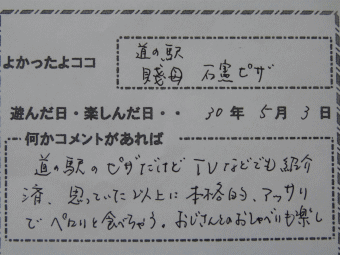 道の駅
よかったよココ
賤母 石窯ピザ
遊んだ日・楽しんだ日・・ 30年 5月 3日
何かコメントがあれば
道の駅のピザだけど TVなどでも紹介
済、思っていた以上に本格的、アッサリ
でペロリと食べちゃう。おじさんとのおしゃべりも楽し